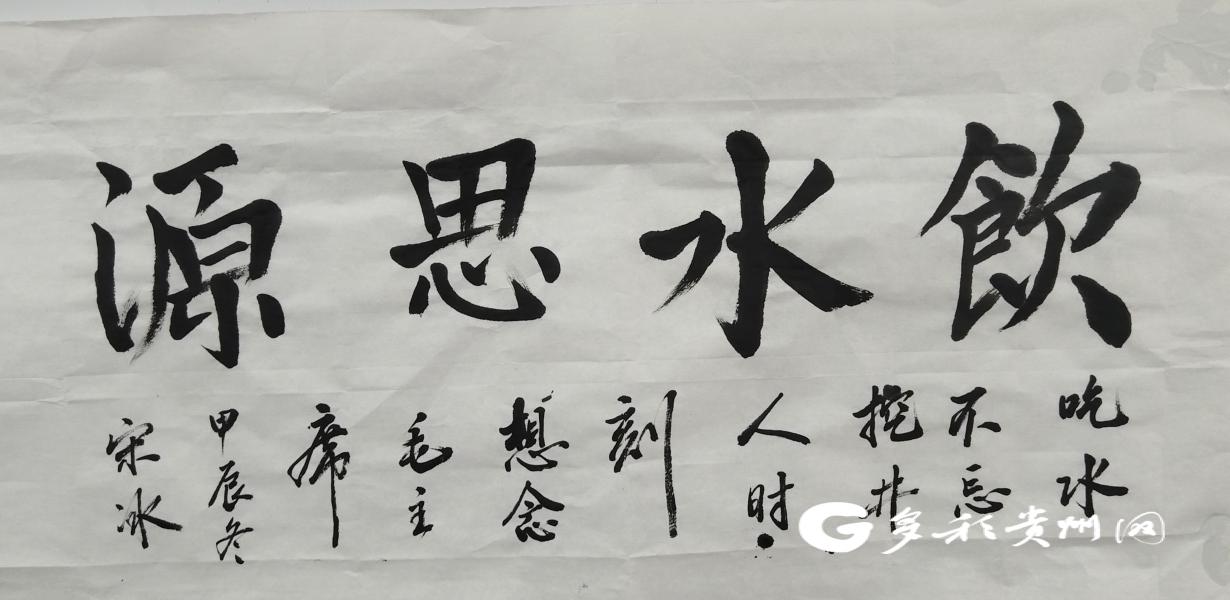 飲水思源
吃水
不忘
挖井
人时
刻
想念
毛主
席
甲辰冬
宋冰
多彩贵州网